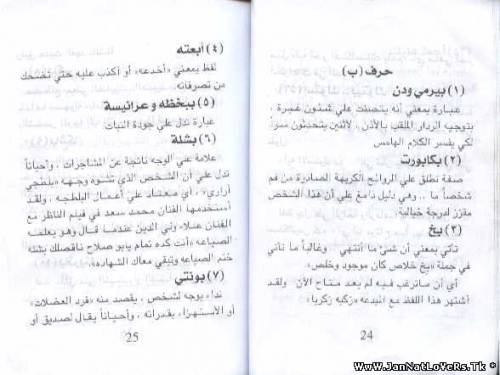 حرف (ب)
(١) بيرمي ودن
عبارة بمعني أنه يتنصت علي شئون غيره ،
بتوجيه الردار الملقب بالأذن ، لاثنين يتحدثون سراً
لكي يفسر الكلام الهامس
(٢) بكابورت
صفة تطلق علي الروائح الكريهة الصادرة من فم
شخصاً ما .. وهي دليل دامغ علي أن هذا الشخص
مقزز لدرجة خيالية .
(٣) بخ
تأتي بمعني أن شئ ما انتهي . وغالباً ما تأتي
في جملة «بخ خلاص كان موجود وخلص»
أي أن ماترغب فيه لم يعد متاح الآن . ولقد
أشتهر هذا اللفظ مع المبدعه «زكيه زكريا»
24
(٤) أبعته
لفظ بمعني «أخدعه» أو أكذب عليه حتي تضحك
من تصرفاته .
(٥) ببخطه و عرائيسة
عبارة تدل علي جودة النبات
(٦) بشلة
علامة علي الوجه ناتجة عن المشاجرات ، وأحياناً
تدل علي أن الشخص الذي تشوه وجهه «بلطجي
أراري» ، أي معتاد علي أعمال البلطجه ، ولقد
أستخدمها الفنان محمد سعد في فيلم الناظر مع
الفنان علاء ولي الدين عندما قال وهو يعلمه
الصياعه «أنت كده تمام يابو صلاح ناقصلك بشله
ختم الصياعه وتبقي معاك الشهاده» .
(٧) بونتي
نداء يوجه لشخص ، يقصد منه «فرد العضلات»
أو الاستهزاء بقدراته ، وأحياناً يقال لصديق أو
25
WwW.JanNatLoVeRs.Tk *